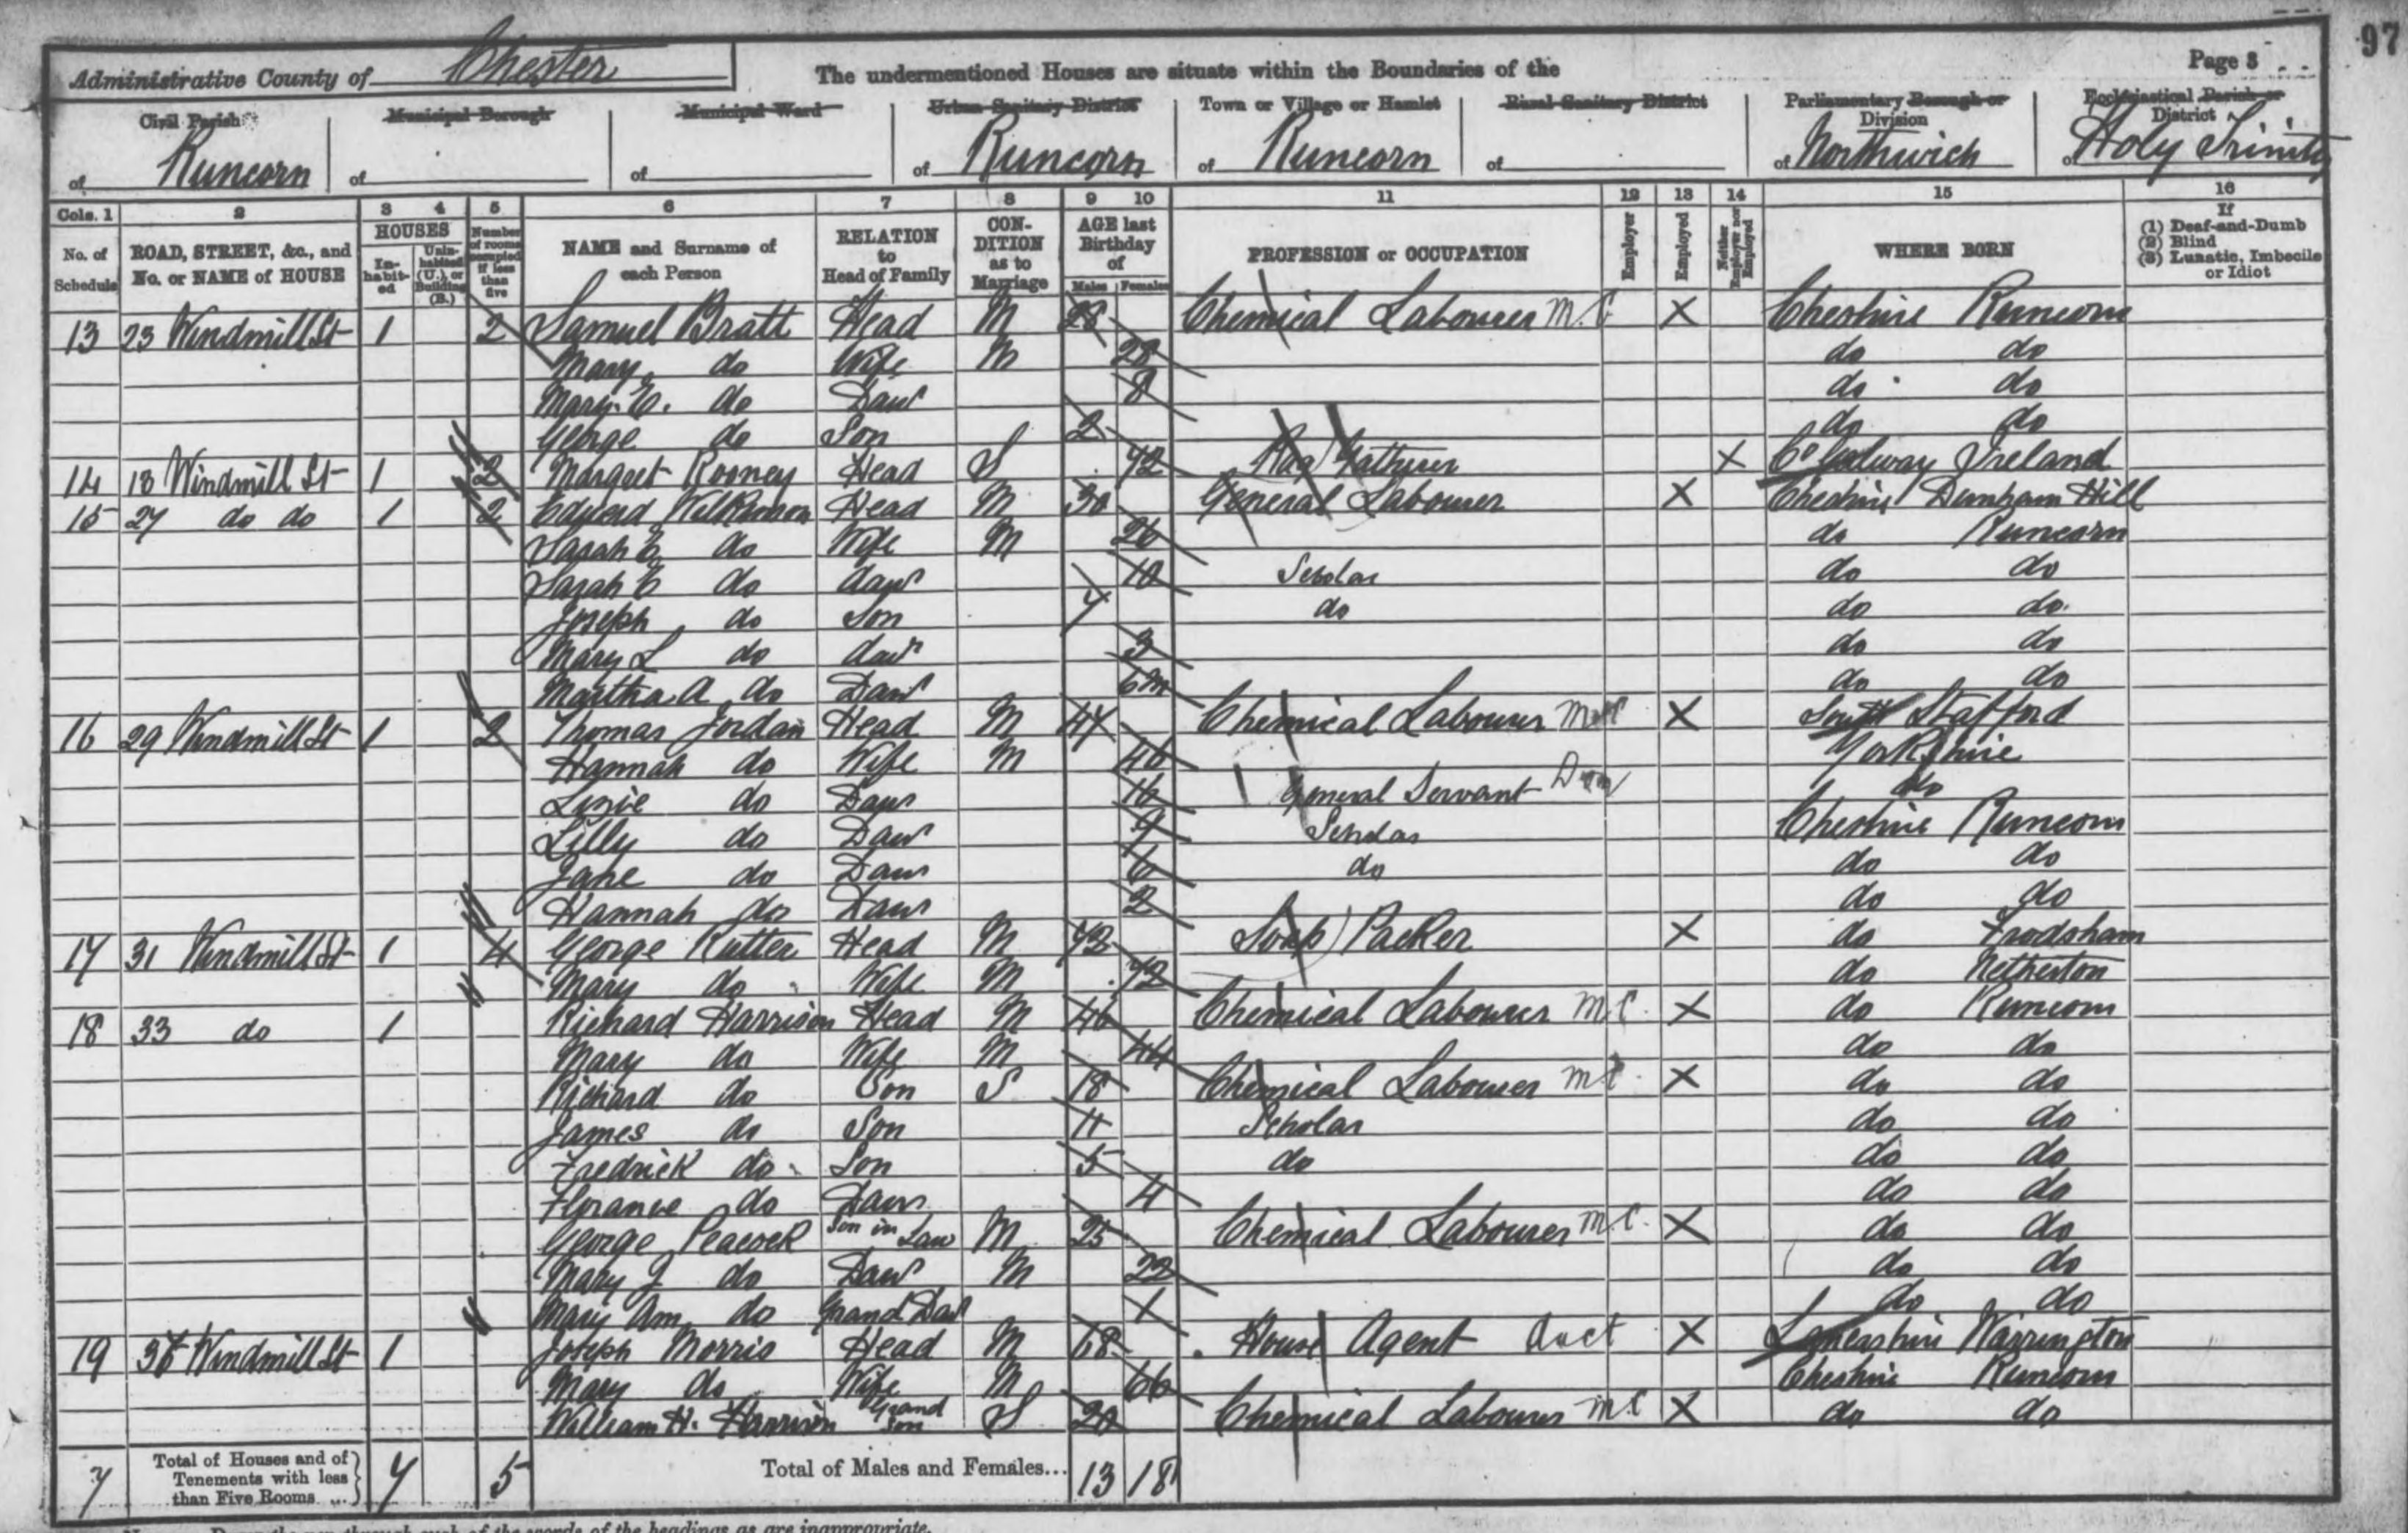 97
Administrative County of Chester The undermentioned Houses are situate within the Boundaries of the Page 3
Civil Parish Municipal Borough Municipal Ward Urban Sanitary District Town or Village or Hamlet Rural Sanitary District Parliamentary Borough or Division Ecclesiastical Parish or District
of Runcorn of of of Runcorn of Runcorn of of Northwich of Holy Trinity
Cols. 1 2 3 4 5 6 7 8 9 10 11 12 13 14 15 16
No. of Schedule ROAD, STREET, &c., and No. or NAME of HOUSE HOUSES Inhabited Uninhabited (U.), or Building (B.) Number of rooms occupied if less than five NAME and Surname of each Person RELATION to Head of Family CONDITION as to Marriage AGE last Birthday of Males Females PROFESSION or OCCUPATION Employer Employed Neither Employer nor Employed WHERE BORN If (1) Deaf-and-Dumb (2) Blind (3) Lunatic, Imbecile or Idiot
13 23 Windmill St 1 2 Samuel Bratt Head M 28 Chemical Labourer M.C X Cheshire Runcorn
Mary do Wife M 28 do do
Mary E. do Daur 8 do do
George do Son 2 do do
14 13 Windmill St 1 2 Margret Rooney Head S 72 Rag Gatherer X Co Galway Ireland
15 27 do do 1 2 Edward Wilkinson Head M 30 General Labourer X Cheshire Dunham Hill
Sarah E do Wife M 26 do Runcorn
Sarah E do daur 10 Scholar do do
Joseph do Son 7 do do do
Mary L do daur 3 do do
Martha A do Daur 6m do do
16 29 Windmill St 1 2 Thomas Jordan Head M 47 Chemical Labourer X South Stafford
Hannah do Wife M 46 Yorkshire
Lizie do Daur 16 General Servant Dom do
Lilly do Daur 9 Scholar Cheshire Runcorn
Jane do Daur 6 do do do
Hannah do Daur 2 do do
17 31 Windmill St 1 4 George Rutter Head M 72 Soap Packer X do Frodsham
Mary do Wife M 72 do Netherton
18 33 do 1 Richard Harrison Head M 46 Chemical Labourer M.C. X do Runcorn
Mary do Wife M 44 do do
Richard do Son S 18 Chemical Labourer M.C. X do do
James do Son 11 Scholar do do
Fredrick do Son 5 do do do
Florance do Daur 4 do do
George Peacock Son in Law M 25 Chemical Labourer M.C. X do do
Mary J do Daur M 22 do do
Mary Ann do Grand Daur 1 do do
19 Windmill St 1 Joseph Morris Head M 68 House Agent Auct X Lancashire Warrington
Mary do Wife M 66 Cheshire Runcorn
William H. Harrison Grand Son S 20 Chemical Labourer M C X do do
7 Total of Houses and of Tenements with less than Five Rooms ... 7 5 Total of Males and Females... 13 18
of the words of the headings as are inappropriate.